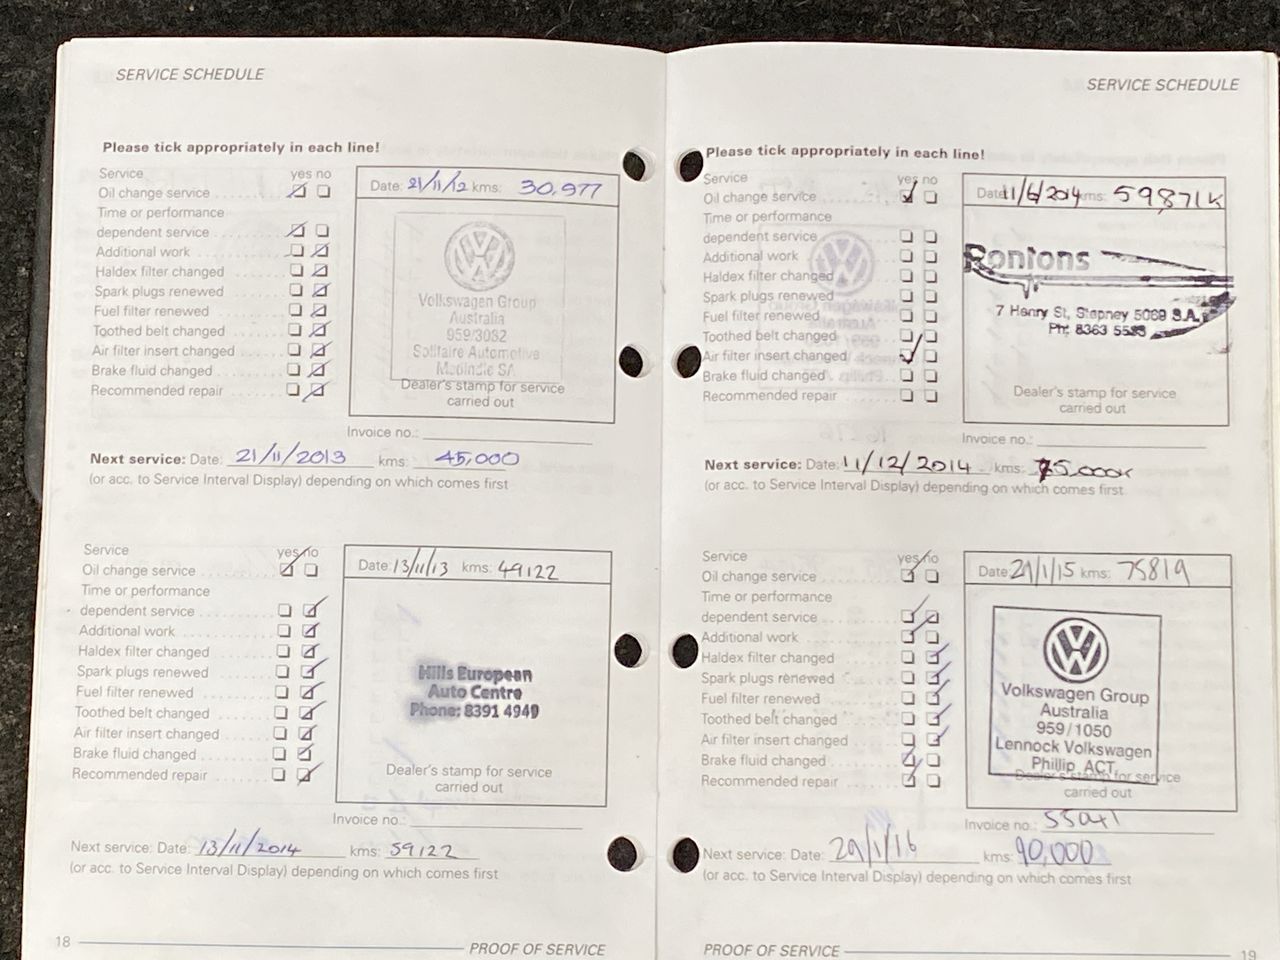 SERVICE SCHEDULE
Please tick appropriately in each line!
Service yes no
Oil change service
Time or performance
dependent service
Additional work
Haldex filter changed
Spark plugs renewed
Fuel filter renewed
Toothed belt changed
Air filter insert changed
Brake fluid changed
Recommended repair
Date: 21/11/12 kms: 30,977
Volkswagen Group
Australia
959/3082
Solitaire Automotive
SA
Dealer's stamp for service
carried out
Invoice no.:
Next service: Date: 21/11/2013 kms: 45,000
(or acc. to Service Interval Display) depending on which comes first
Service yes no
Oil change service
Time or performance
dependent service
Additional work
Haldex filter changed
Spark plugs renewed
Fuel filter renewed
Toothed belt changed
Air filter insert changed
Brake fluid changed
Recommended repair
Date: 13/11/13 kms: 49122
Hills European
Auto Centre
Phone: 8391 4949
Dealer's stamp for service
carried out
Invoice no.:
Next service: Date: 13/11/2014 kms: 59122
(or acc. to Service Interval Display) depending on which comes first
18 PROOF OF SERVICE
SERVICE SCHEDULE
Please tick appropriately in each line!
Service yes no
Oil change service
Time or performance
dependent service
Additional work
Haldex filter changed
Spark plugs renewed
Fuel filter renewed
Toothed belt changed
Air filter insert changed
Brake fluid changed
Recommended repair
Date: 11/6/2014 kms: 59871K
Rontons
7 Henry St, Stepney 5069 S.A.
Ph: 8363
Dealer's stamp for service
carried out
Invoice no.:
Next service: Date: 11/12/2014 kms: 75,000K
(or acc. to Service Interval Display) depending on which comes first
Service yes no
Oil change service
Time or performance
dependent service
Additional work
Haldex filter changed
Spark plugs renewed
Fuel filter renewed
Toothed belt changed
Air filter insert changed
Brake fluid changed
Recommended repair
Date: 29/1/15 kms: 75819
Volkswagen Group
Australia
959/1050
Lennock Volkswagen
Phillip ACT
Dealer's stamp for service
carried out
Invoice no.: 55041
Next service: Date: 29/1/16 kms: 90,000
(or acc. to Service Interval Display) depending on which comes first
PROOF OF SERVICE 19